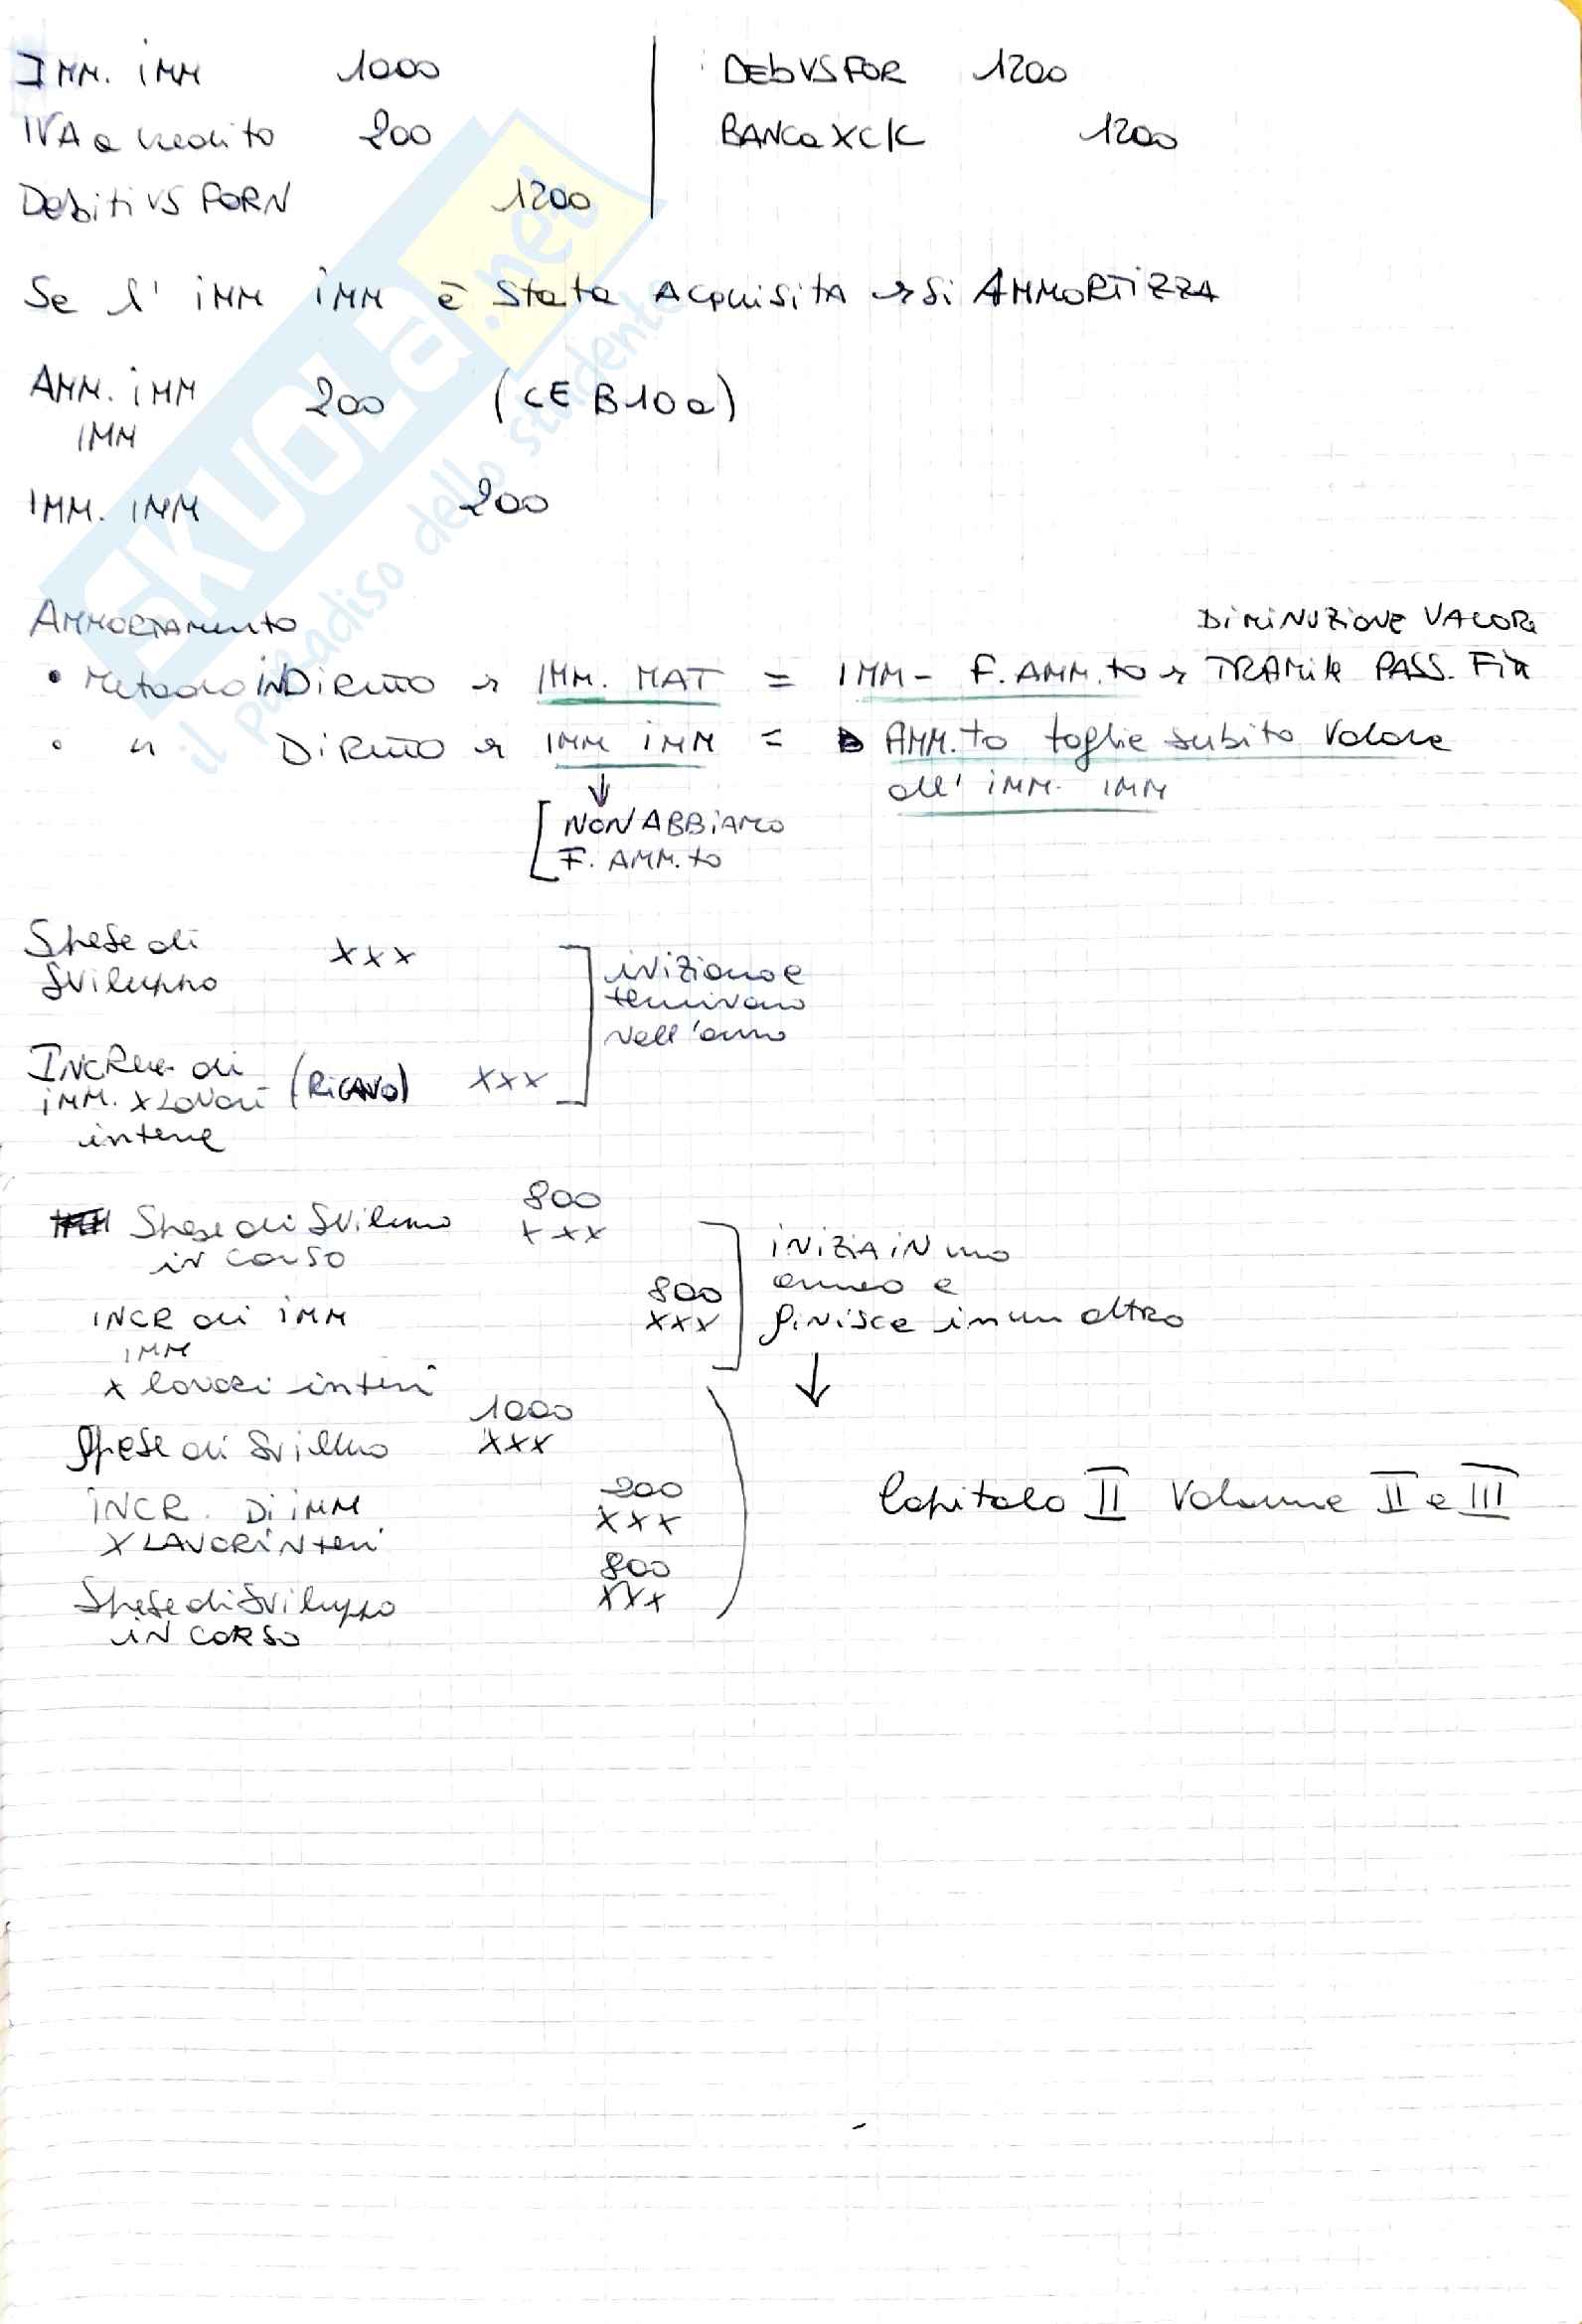 IMM. iMM 1000
IVA a credito 200
Debiti VS FORN 1200
DEb VS FOR 1200
BANCa X C/C 1200
Se l' iMM iMM è stata Acquisita → Si AMMORTIZZA
AMM. iMM 200 (CE B10a)
IMM
IMM. IMM 200
AMMORTAMento
DiMiNUZiONE VALORE
• Metodo iNDiRetto → IMM. MAT = IMM - F. AMM.to → TRAMite PASS. Fix
• " DiRetto → IMM iMM = AMM.to toglie subito Valore
all' iMM. IMM
↓
NON ABBiAMO
F. AMM.to
Spese di xxx
Sviluppo
iniziano e
terminano
nell'anno
INCRem. di
iMM. x Lavori (RiCAVO) xxx
interne
800
Spese di Sviluppo xxx
in corso
800
INCR di iMM xxx
IMM
x lavori interni
iNiZiA iN uno
anno e
finisce in un altro
↓
1000
Spese di Sviluppo xxx
200
iNCR. Di iMM xxx
X LAVORi iNterni
800
Spese di Sviluppo xxx
iN CORSO
Capitolo II Volume II e III
SKUOLa.net
il paradiso dello studente